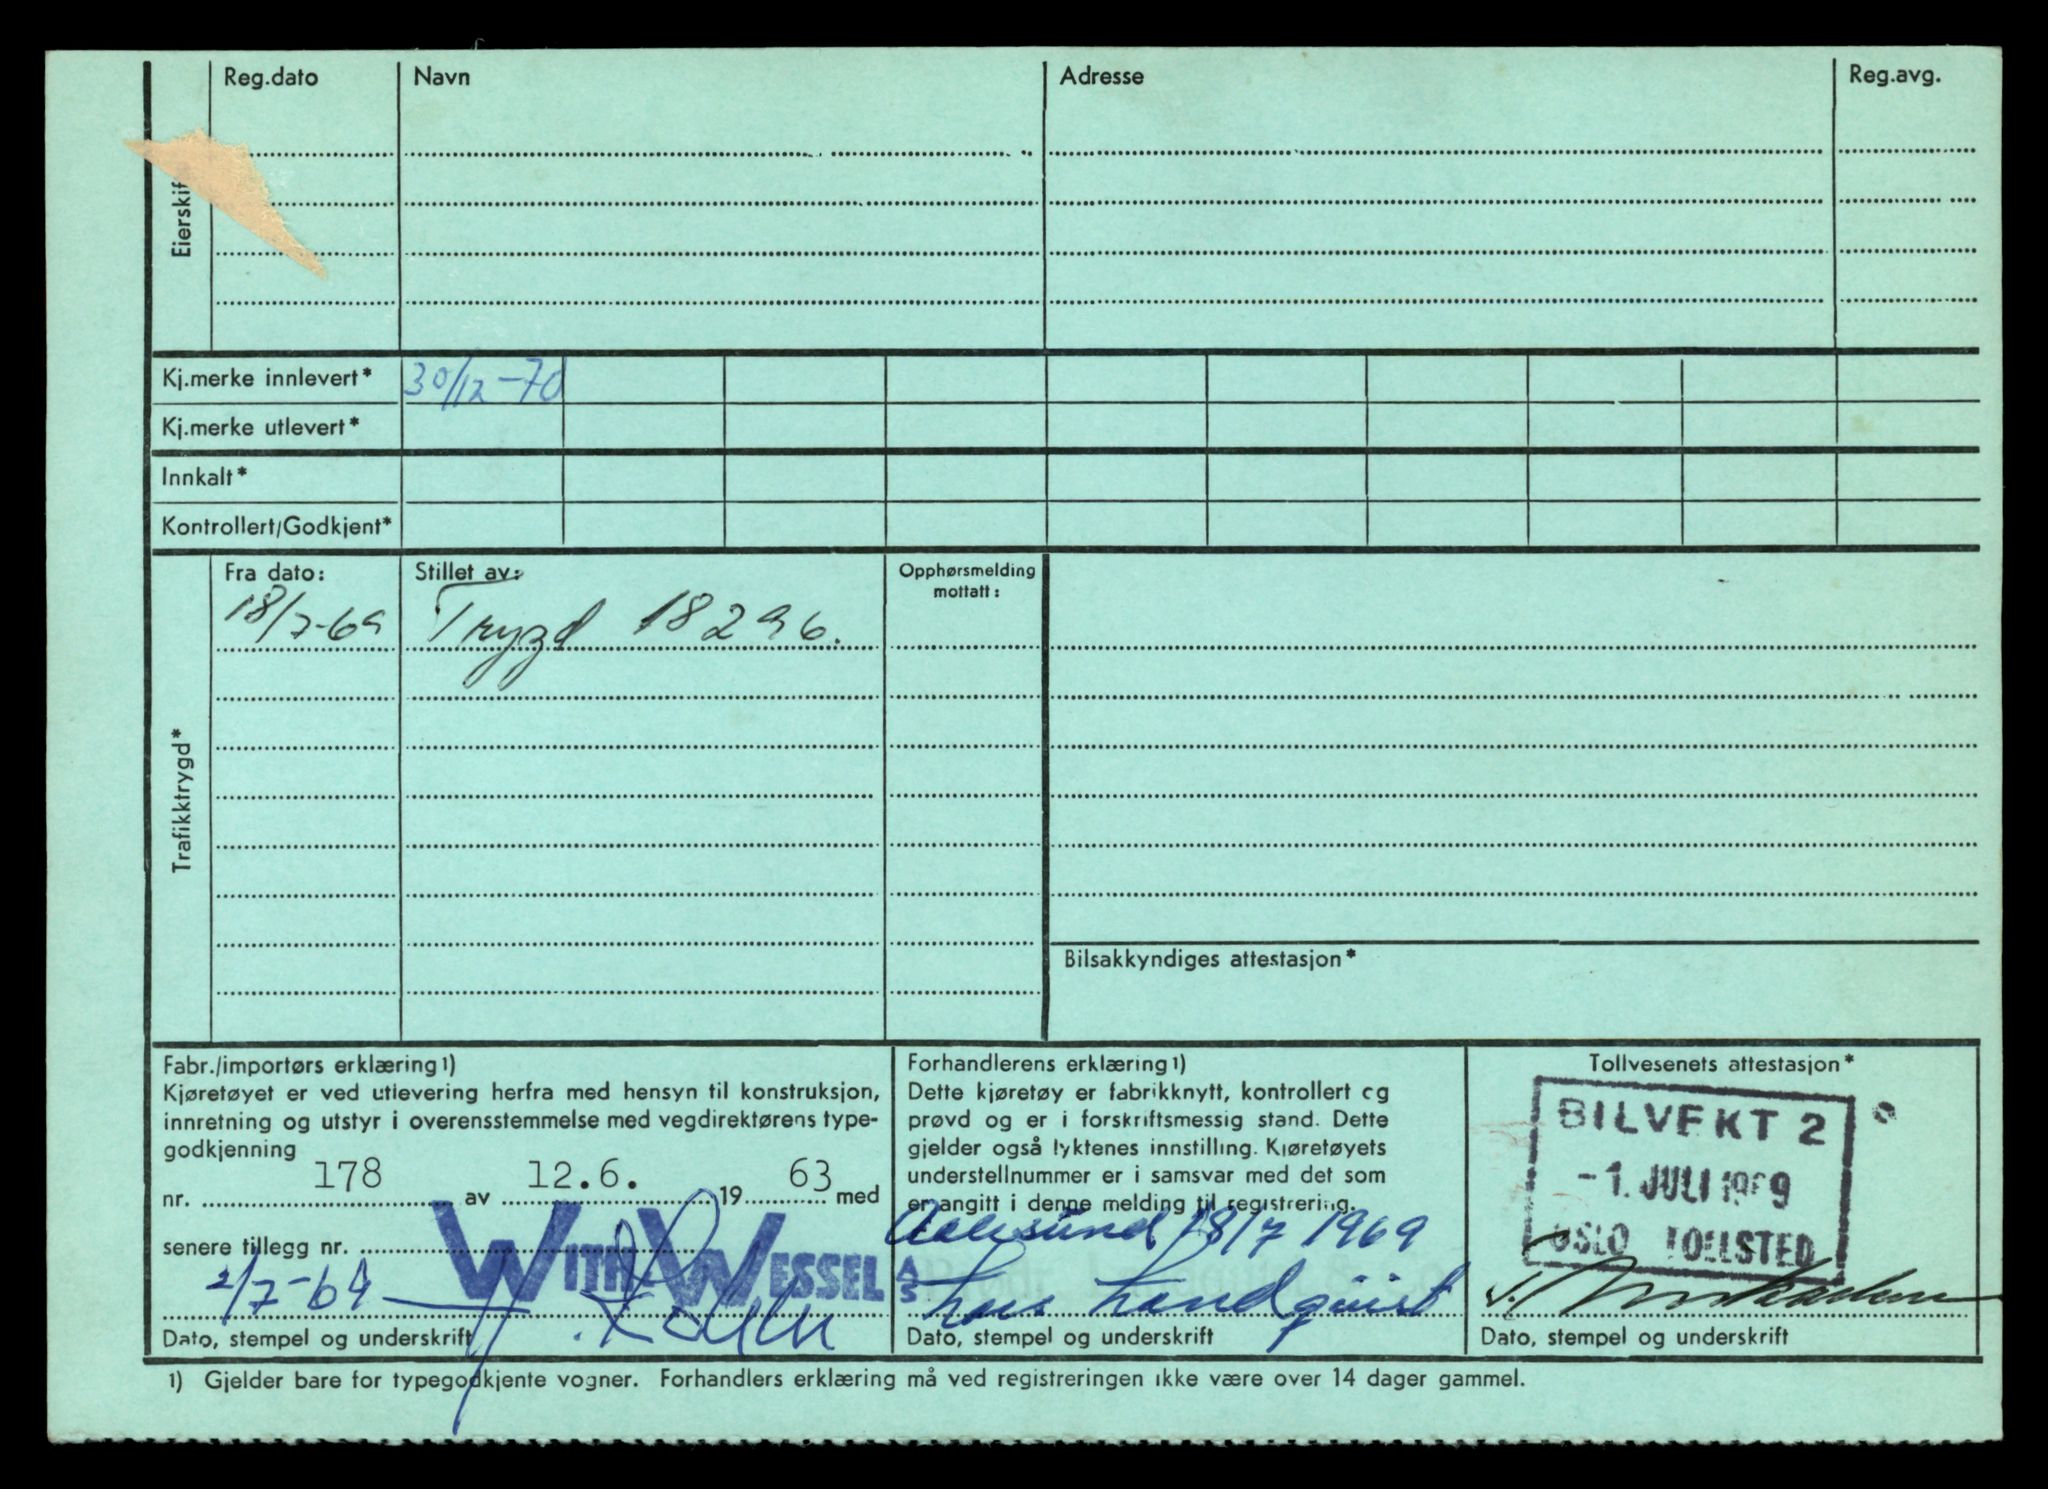 Reg.dato Navn Adresse Reg.avg.
Eierskif
Kj.merke innlevert* 30/12-70
Kj.merke utlevert*
Innkalt*
Kontrollert/Godkjent*
Trafikktrygd*
Fra dato: Stillet av: Opphørsmelding mottatt:
18/7-69 Trygd 18296.
Bilsakkyndiges attestasjon*
Fabr./importørs erklæring 1)
Kjøretøyet er ved utlevering herfra med hensyn til konstruksjon,
innretning og utstyr i overensstemmelse med vegdirektørens type-
godkjenning
nr. 178 av 12.6. 19 63 med
senere tillegg nr.
2/7-69 WITH WESSEL A/S
Dato, stempel og underskrift
Forhandlerens erklæring 1)
Dette kjøretøy er fabrikknytt, kontrollert og
prøvd og er i forskriftsmessig stand. Dette
gjelder også lyktenes innstilling. Kjøretøyets
understellnummer er i samsvar med det som
er angitt i denne melding til registrering.
Aalesund 18/7 1969
Lars Landquist
Dato, stempel og underskrift
Tollvesenets attestasjon*
BILVEKT 2
-1. JULI 1969
OSLO TOLLSTED
Dato, stempel og underskrift
1) Gjelder bare for typegodkjente vogner. Forhandlers erklæring må ved registreringen ikke være over 14 dager gammel.